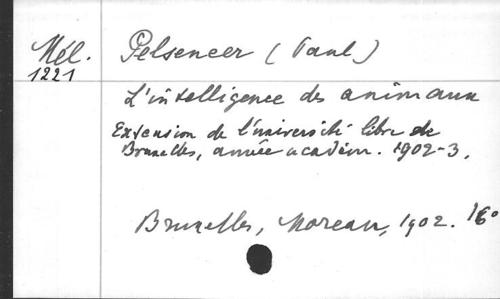 Mél.
1221
Pelseneer (Paul)
L'intelligence des animaux
Extension de l'université libre de
Bruxelles, année académ. 1902-3.
Bruxelles, Moreau, 1902. 16°